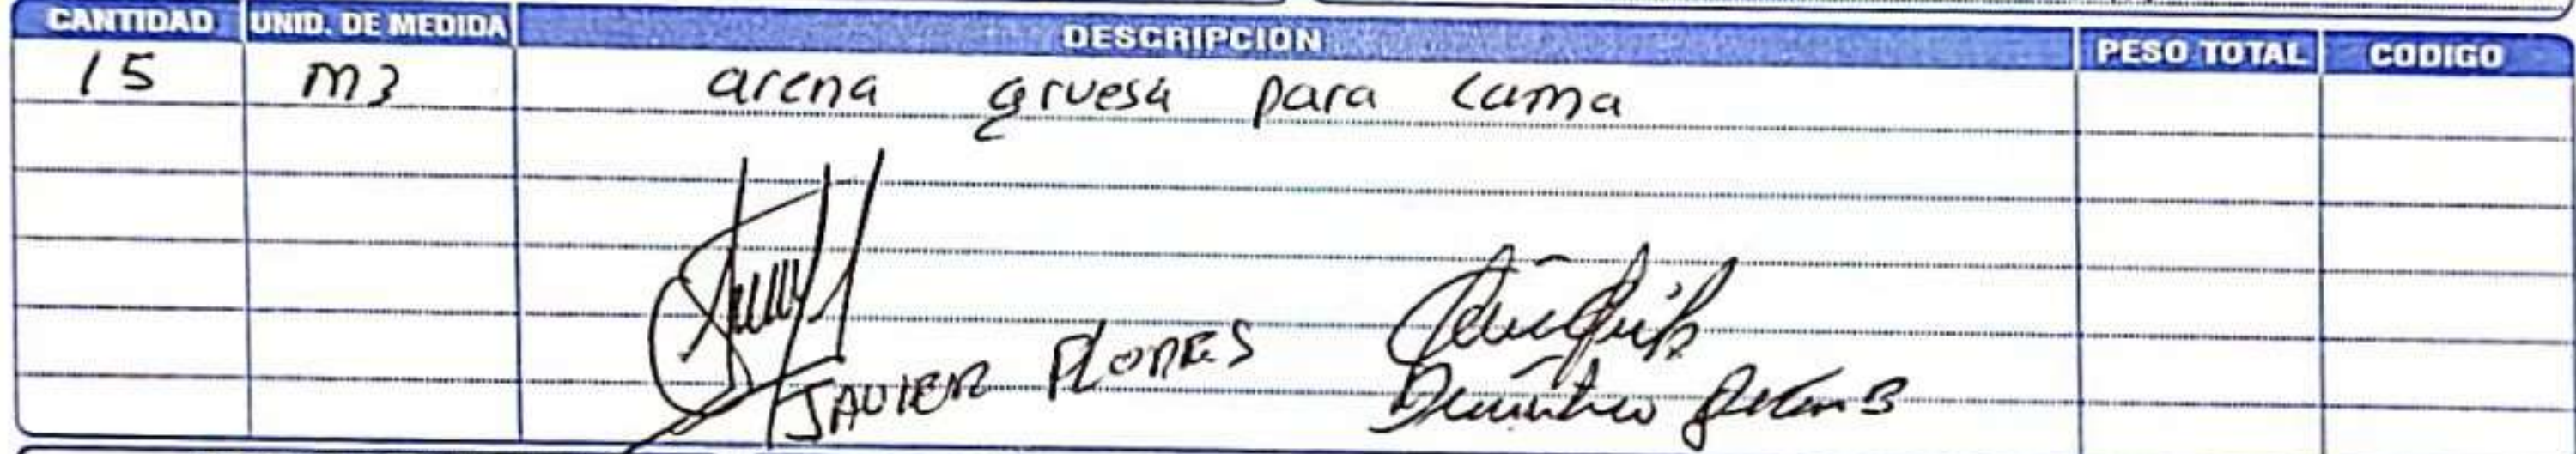 CANTIDAD UNID. DE MEDIDA DESCRIPCION PESO TOTAL CODIGO
15 m3 arena gruesa para cama
JAVIER FLORES